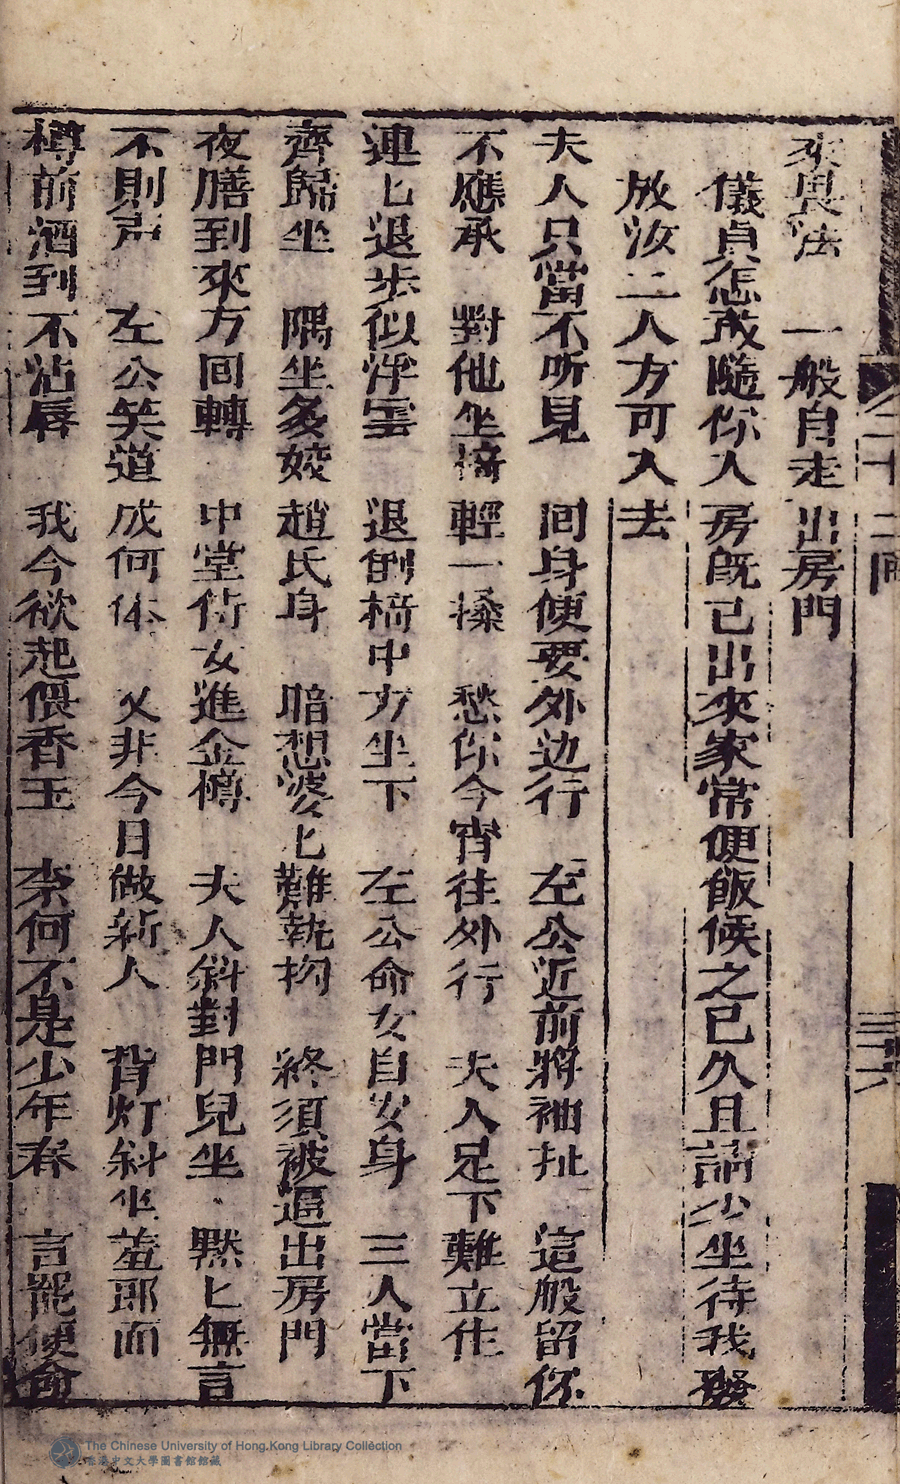 二十二回 三十六
來畏法 一般自走出房門
儀貞怎敢隨你入房旣已出來家常便飯候之已久且請少坐待我發
放汝二人方可入去
夫人只當不听見 囘身便要外边行 左公近前將袖扯 這般留你
不應承 對他坐椅輕一搡 愁你今宵往外行 夫人足下難立住
連匕退步似浮雲 退倒椅中方坐下 左公命女自安身 三人當下
齊歸坐 隅坐多姣趙氏身 暗想婆匕難執拘 終須被逼出房門
夜膳到來方回轉 中堂侍女進金樽 夫人斜對門兒坐 默匕無言
不則声 左公笑道成何体 又非今日做新人 背灯斜坐羞郎面
樽前酒到不沾唇 我今欲起偎香玉 柰何不是少年春 言罷便命
The Chinese University of Hong Kong Library Collection
香港中文大學圖書館館藏